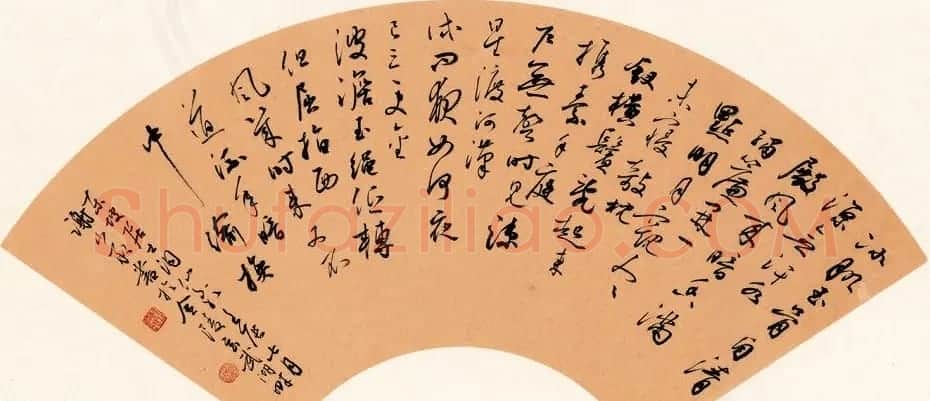 冰肌玉骨自清
涼無汗水
殿風來暗香滿
繡簾開一
點明月窺人人
未寢欹枕
釵橫鬢亂起來
攜素手庭
戶無聲時見疎
星渡河漢
試問夜如何夜
已三更金
波澹玉繩低轉
但屈指西
風幾時來又不
道流年暗
中偷換
書於金陵玄武湖畔
Shufaziliao.COM